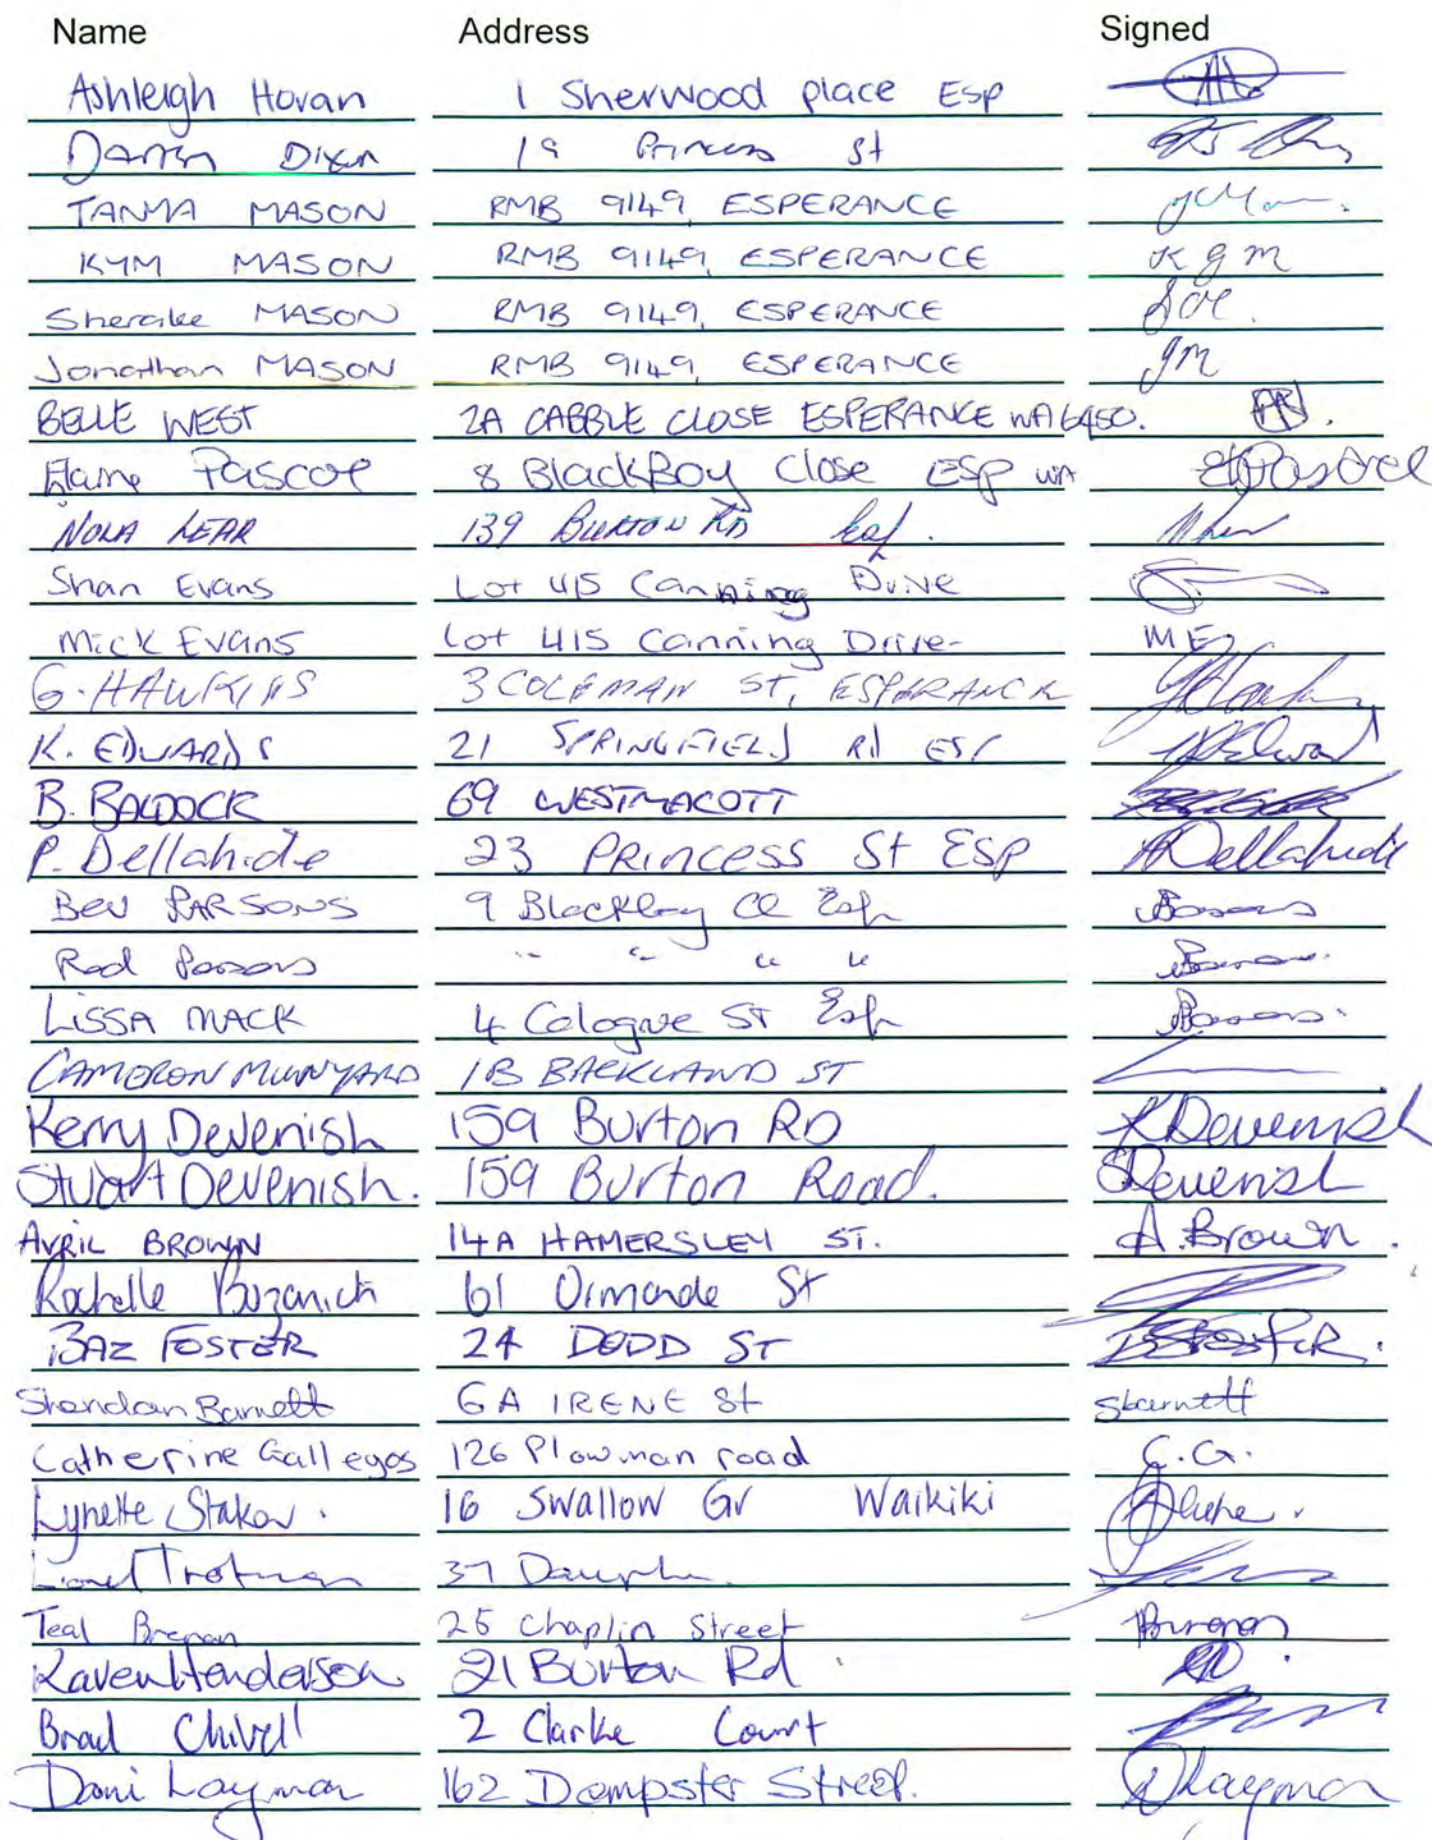 Name Address Signed
Ashleigh Horan 1 Sherwood place Esp
Darren Dixon 19 Princess St
TANYA MASON RMB 9149, ESPERANCE
KYM MASON RMB 9149, ESPERANCE K G M
MASON RMB 9149, ESPERANCE
Jonathan MASON RMB 9149, ESPERANCE JM
BELLE WEST 2A CABBLE CLOSE ESPERANCE WA 6450.
Elaine Pascoe 8 BlackBoy Close ESP WA
NOLA LEAR 139 BURTON RD Esp.
Shan Evans Lot 415 Canning Drive
Mick Evans Lot 415 Canning Drive M E
G. HAWKINS 3 COLEMAN ST, ESPERANCE
K. EDWARDS 21 SPRINGFIELD Rd ESP
B. BALDOCK 69 WESTMACOTT
P. Dellahide 23 PRINCESS St ESP Dellahide
BEV PARSONS 9 Blackboy Cl Esp
Rod Parsons " " " "
LISSA MACK 4 Cologne ST Esp
CAMERON MUNYARD 1B BACKLAND ST
Kerry Devenish 159 Burton RD K Devenish
Stuart Devenish. 159 Burton Road. S Devenish
AVRIL BROWN 14A HAMERSLEY ST. A. Brown.
Rochelle Buzanich 61 Ormonde St
BAZ FOSTER 24 DODD ST
Sheridan Barnett 6A IRENE St SBarnett
Catherine Gallegos 126 Plowman road C.G.
Lynette Stakov. 16 Swallow Gr Waikiki
Lionel Trotman 37
Teal Brenan 25 Chaplin Street
Karen Henderson 21 Burton Rd
Brad Chivell 2 Clarke Court
Dani Layman 162 Dempster Street. D Layman